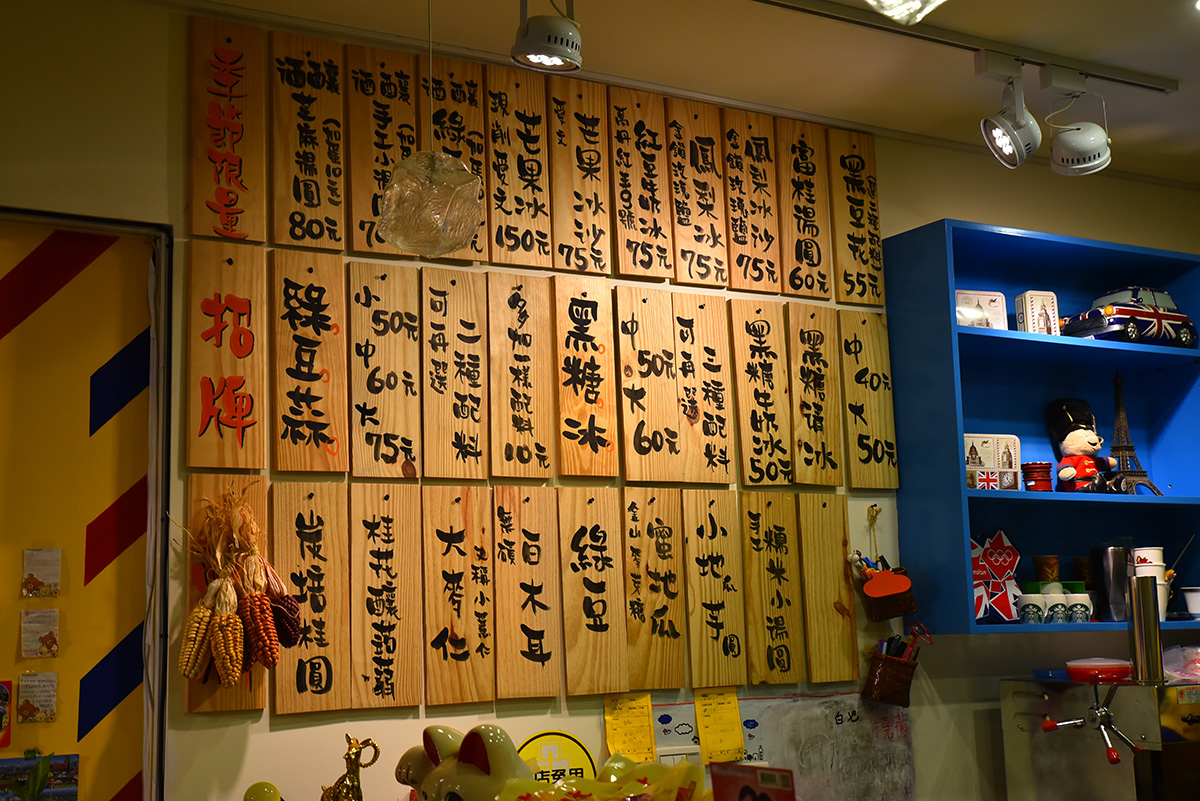 季節限量
酒釀芝麻湯圓
(加蛋10元)
80元
酒釀手工小湯
(加
酒釀綠
(加
現削愛文
芒果冰
150元
愛文
芒果冰沙
75元
萬丹紅
紅豆牛奶冰
75元
金鑽玫瑰鹽
鳳梨冰
75元
金鑽玫瑰鹽
鳳梨冰沙
75元
富桂湯圓
60元
黑豆花
55元
招牌
綠豆蒜
小50元
中60元
大75元
可再選
二種配料
多加一樣配料
10元
黑糖冰
中50元
大60元
可再選
三種配料
黑糖牛奶冰
50元
黑糖清冰
中40元
大50元
炭培桂圓
桂花釀蒟蒻
大麥仁
又稱小薏仁
無硫
白木耳
綠豆
金山麥芽糖
蜜地瓜
小地瓜芋圓
手工糯米小湯圓